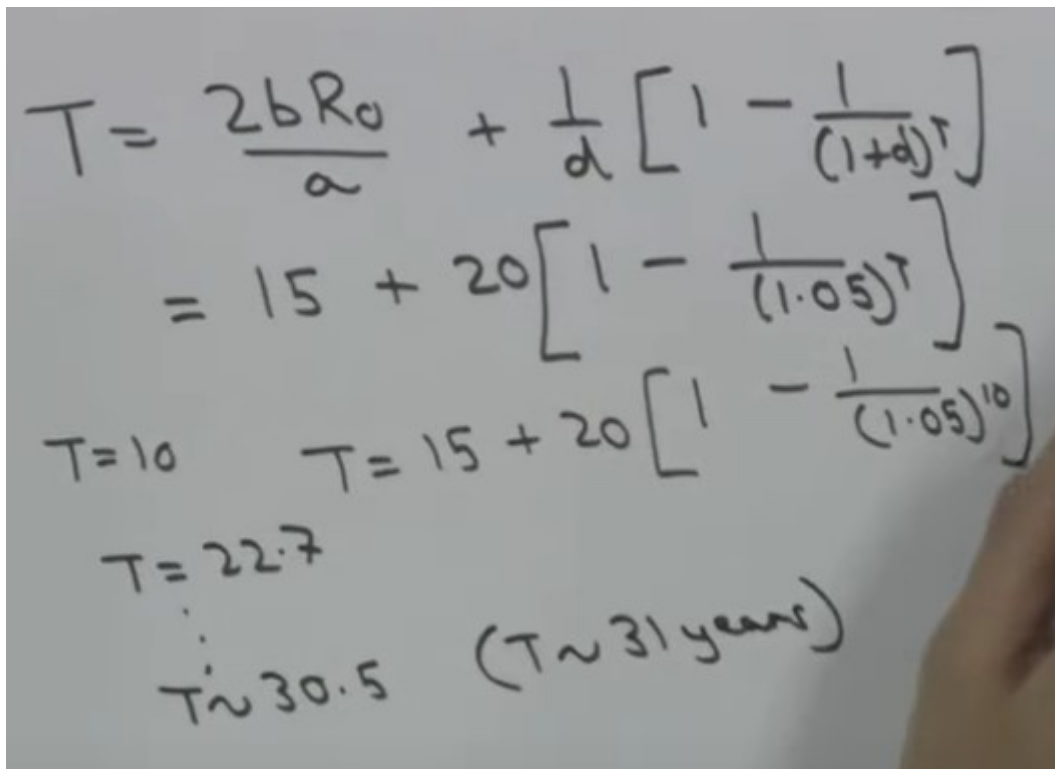 T = 2bR₀/a + 1/d [1 - 1/(1+d)ᵀ]
= 15 + 20[1 - 1/(1.05)ᵀ]
T=10 T= 15 + 20[1 - 1/(1.05)¹⁰]
T= 22.7
⋮
T~30.5 (T~31 years)